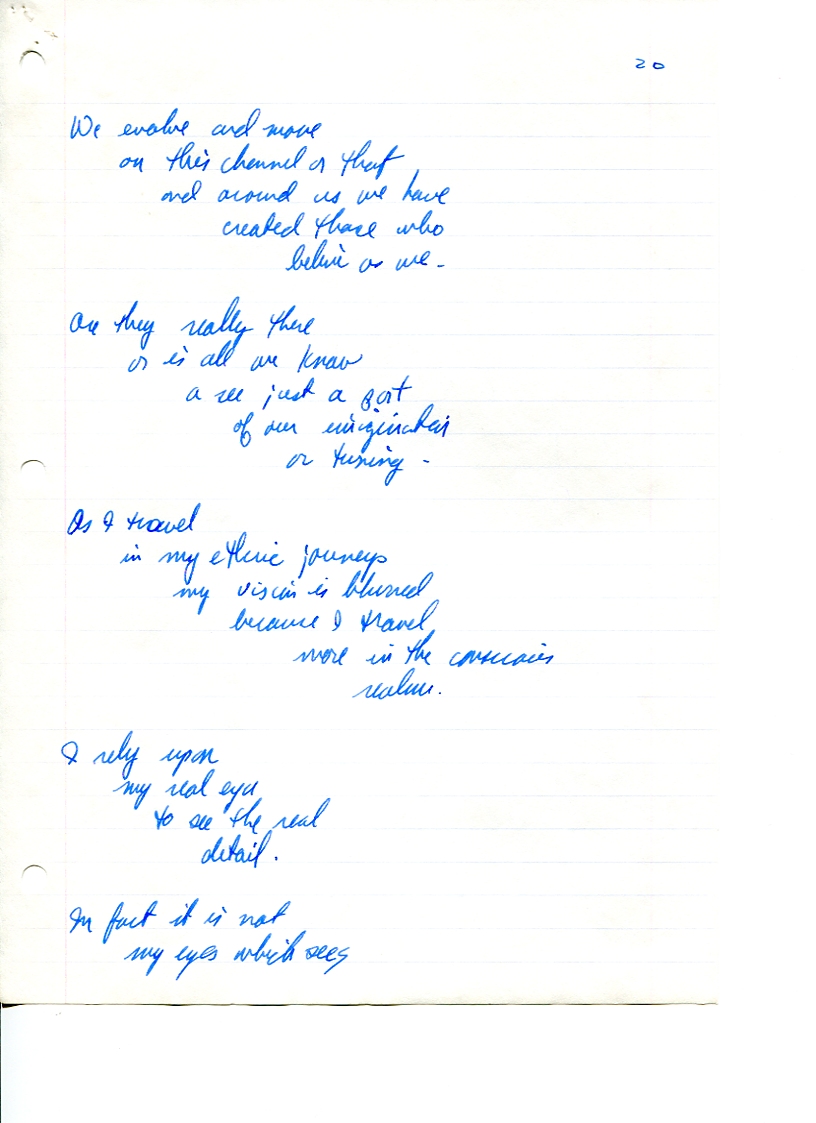 20
We evolve and move
on this channel or that,
and around us we have
created those who
believe as we -
Are they really there
or is all we know
or see just a part
of our imagination
or tuning -
As I travel
in my etheric journeys
my vision is blurred
because I travel,
more in the conscious
realm.
I rely upon
my real eyes
to see the real
detail.
In fact it is not
my eyes which sees